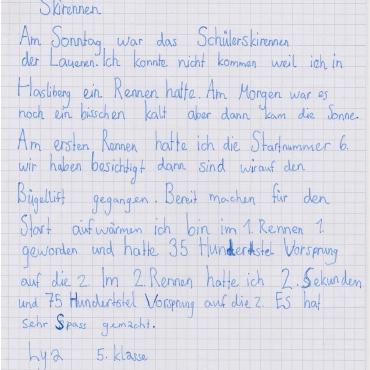 Skirennen
Am Sonntag war das Schülerskirennen
der Lauenen. Ich konnte nicht kommen weil ich in
Hasliberg ein Rennen hatte. Am Morgen war es
noch ein bisschen kalt aber dann kam die Sonne.
Am ersten Rennen hatte ich die Startnummer 6.
wir haben besichtigt dann sind wir auf den
Bügellift gegangen. Bereit machen für den
Start aufwärmen ich bin im 1. Rennen 1.
geworden und hatte 35 Hundertstel Vorsprung
auf die 2. Im 2. Rennen hatte ich 2. Sekunden
und 75 Hundertstel Vorsprung auf die 2. Es hat
sehr Spass gemacht.
Lya 5. klasse